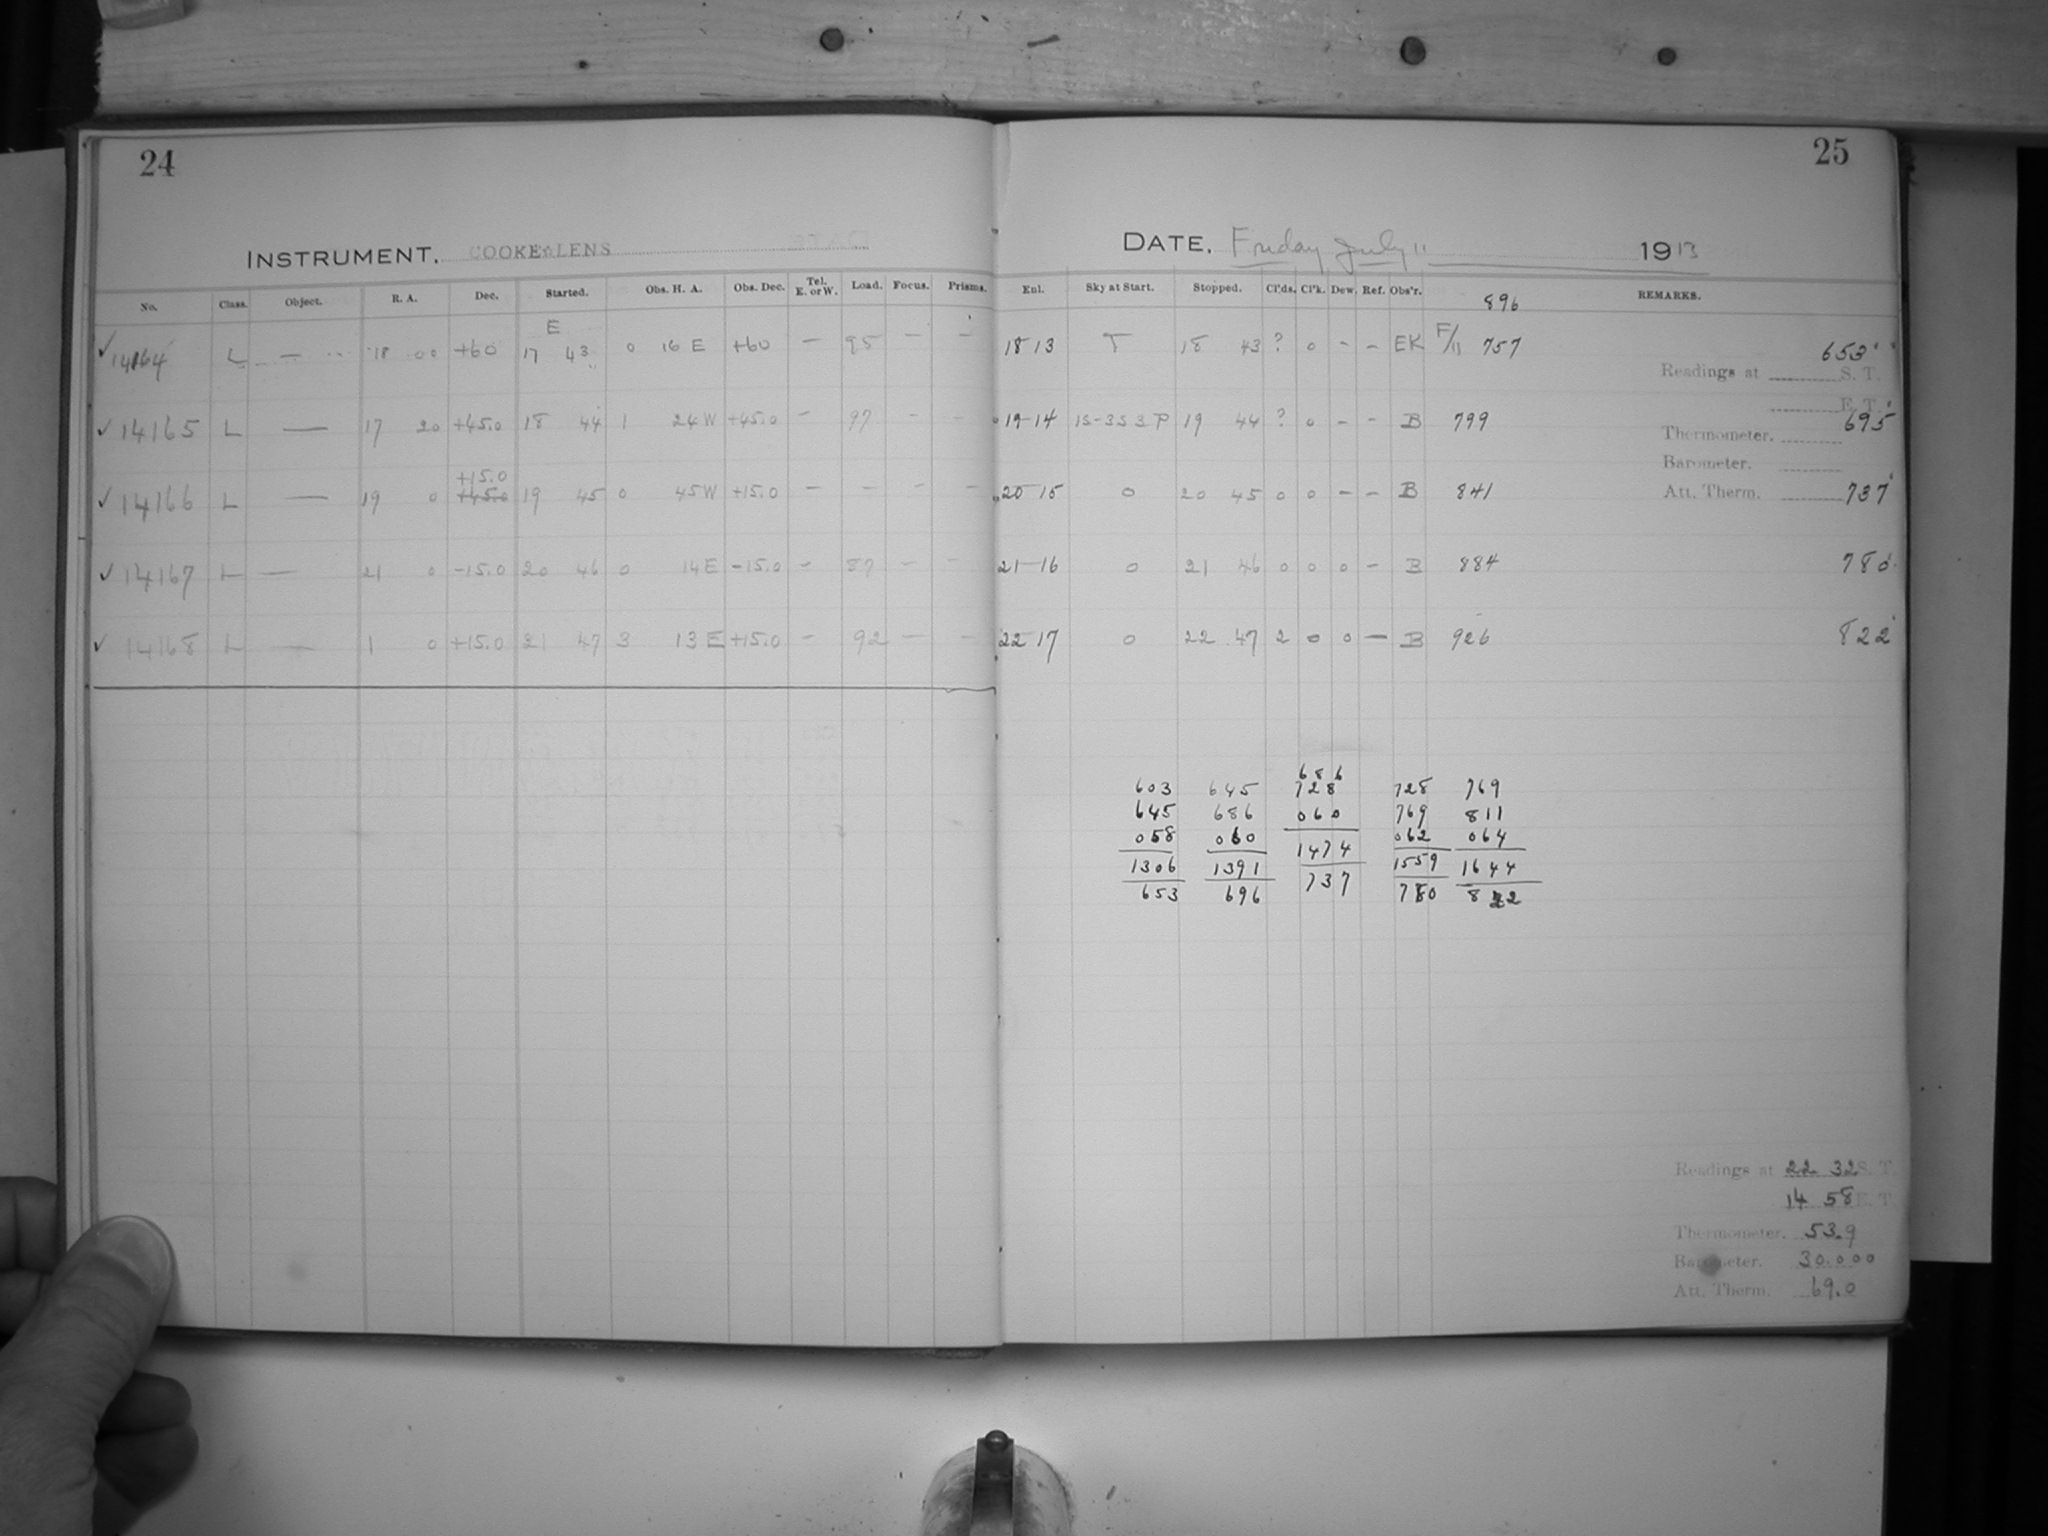 24
25
INSTRUMENT. COOKE LENS
DATE. Friday July 11 1913
No. Class. Object. R. A. Dec. Started. Obs. H. A. Obs. Dec. Tel. E. or W. Load. Focus. Prisms. Enl. Sky at Start. Stopped. Cl'ds. Cl'k. Dew. Ref. Obs'r. REMARKS.
896
E
✓ 14164 L — 18 00 +60 17 43 0 16 E +60 — 95 — — 18 13 T 18 43 ? 0 - - EK F/11 757 653
Readings at S. T.
E. T.
✓ 14165 L — 17 20 +45.0 18 44 1 24 W +45.0 — 97 - - 19-14 1S-3S3P 19 44 ? 0 - - B 799 695
Thermometer.
Barometer.
+15.0
✓ 14166 L — 19 0 +45.0 19 45 0 45 W +15.0 — — — — 20 15 0 20 45 0 0 - - B 841 737
Att. Therm.
✓ 14167 L — 21 0 -15.0 20 46 0 14 E -15.0 - 87 - - 21-16 0 21 46 0 0 0 - B 884 780
✓ 14168 L — 1 0 +15.0 21 47 3 13 E +15.0 - 92 — - 22 17 0 22 47 2 0 0 — B 926 822
686
603 645 728 728 769
645 686 060 769 811
058 060 062 064
1306 1391 1474 1559 1644
653 696 737 780 822
Readings at 22 32 S. T.
14 58 E. T.
Thermometer. 53.9
Barometer. 30.000
Att. Therm. 69.0